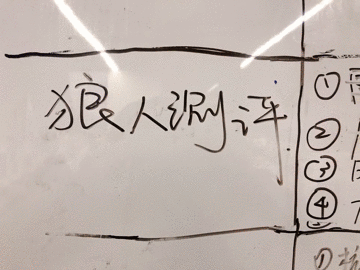 狼人测评
①
②
③
④
①